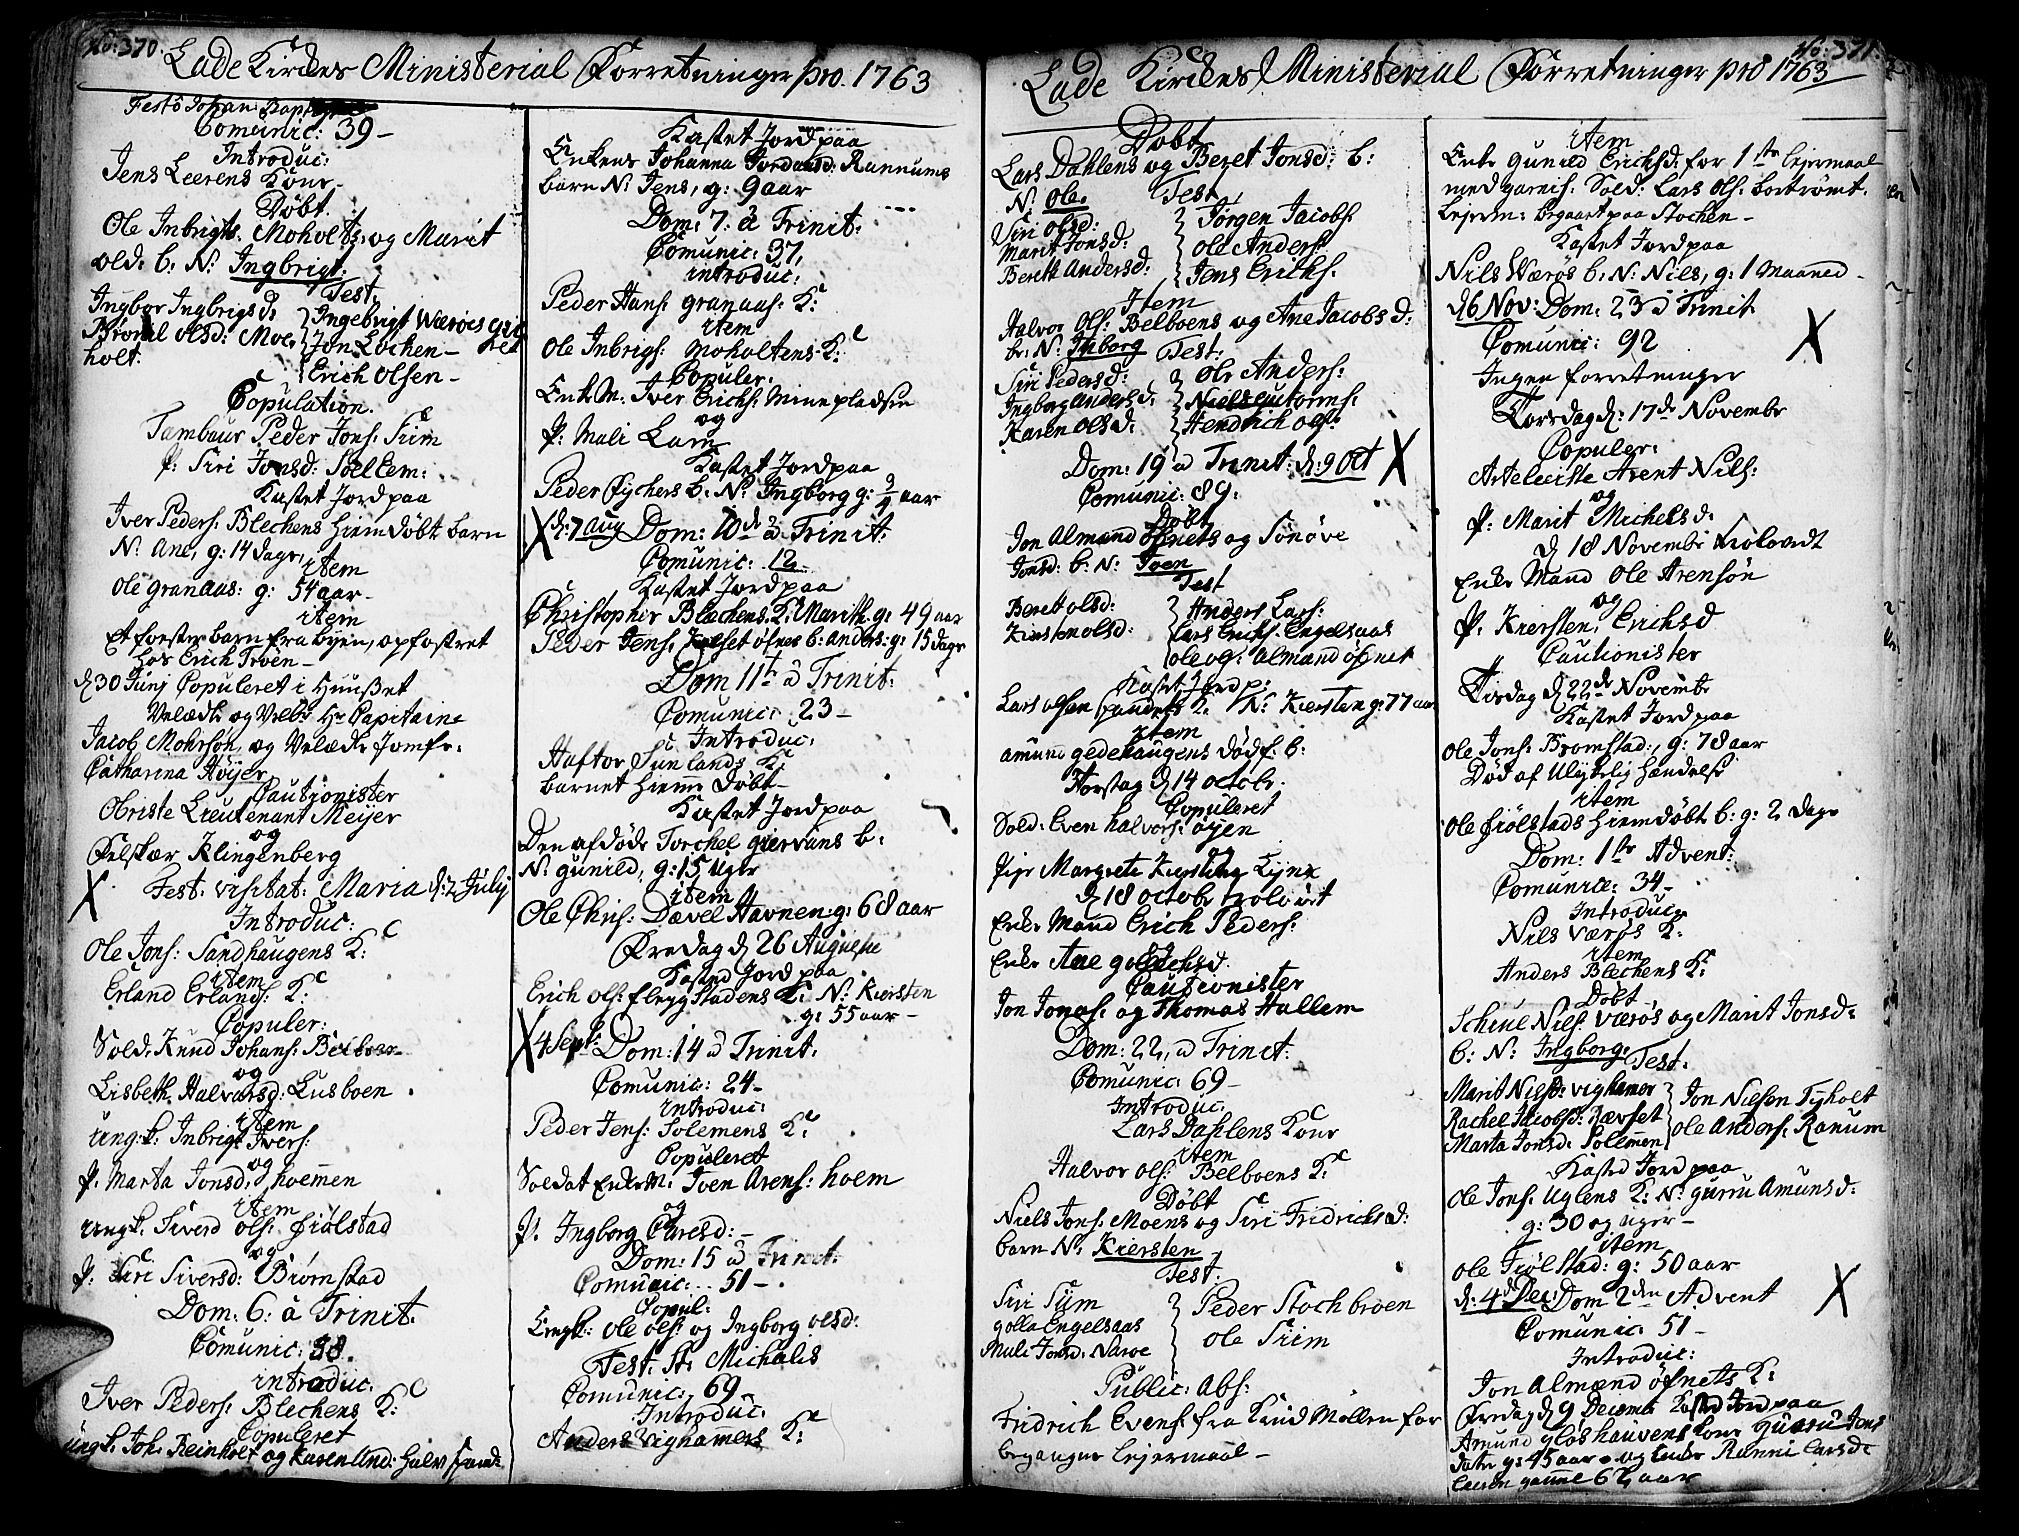 No: 370. Lade Kirckes Ministerial Forretninger pro. 1763
Festo Johan: Bapt
Comunic: 39-
Introduc:
Jens Leerens Konr
Døbt.
Ole Inbrigts. Moholts, og Marit
Olsd. b: N: Ingbrigt.
Test.
Ingbor Ingbrigsd:
Ingebrigt Værøes
Olsd: Moe
holt:
Jon Lochen-
Erich Olsen-
Copulation.
Tambour Peder Jons: Siim
P: Siri Jonsd: Soellem:
Kastet Jord paa
Iver Peders: Blechens hiemdøbt barn
N: Ane, g: 14 dage,
item
Ole Granaas: g: 54 aar-
item
Et foster barn fra byen, opfostret
hos Erich Troen-
d. 30 Junj Copuleret i Huuset
Velædle og Velb: Hr Capitaine
Jacob Mohrsøn, og Velædle Jomfr:
Catharina Høyer
Cautionister
Obriste Lieutenant Meyer
og
Felskær Klingenberg
X Fest: Visitat: Maria d: 2 July
Introduc:
Ole Jons: Sandhaugens K:
item
Erland Erlands: K:
Populer:
Sold: Knud Johans:
og
Lisbeth Halvorsd: Lusboen
item
Ungk: Inbrigt Ivers:
og
P: Marta Jonsd: hoemen
item
Ungk: Siverd Ols: Fiølstad
og
P: Siri Siversd: Biørnstad
Dom: 6: â Trinit:
Comunic: 38.
introduc:
Iver Peders: Blechens K:
Copuleret
Ungk. Joh: Reinholt og Karen And:
Kastet Jord paa
Enkens Johanna Rannums
barn N: Jens, g: 9 aar
Dom: 7: â Trinit:
Comunic: 37,
introduc:
Peder Hans: Granaas: K:
item
Ole Inbrigs: Moholtens K:
Populer:
Enk M: Iver Erichs: Minepladsen
og
P: Mali Lam
Kastet Jord paa
Peder Fychers b: N: Ingborg g: 3/4 aar
X d: 7 Aug Dom: 10 d â Trinit:
Comunic: 12.
Kastet Jord paa
Christopher Blechens K: Marith g: 49 aar
Peder Jens: b: Anders: g: 15 dage
Dom 11te â Trinit:
Comunic: 23-
Introduc:
Haftor Sunlands K:
barnet hieme døbt-
Kastet Jord paa
Den afdøde Torchel b:
N: Gunild, g: 15 Uger
item
Ole Chris: Dævel Havnen: g: 68 aar
Fredag d 26 Augusti
Kasted Jord paa
Erich Ols: K: N: Kiersten
g: 55 aar-
X 4 Sept: Dom: 14 â Trinit:
Comunic: 24-
introduc:
Peder Jens: Solemens K:
Populeret
Soldat Enke M: Iven Arens: hoem
og
P. Ingborg Laresd:-
Dom: 15 â Trinit:
Comunic: 51-
Copul:
Ungk: Ole Ols: og Ingborg Olsd:
Fest. St: Michalis
Comunic: 69-
Introduc:
Anders Vighamers K:
No: 371. Lade Kirckes Ministerial Forretninger pro 1763
Døbt
Lars Dahlens og Beret Jonsd: b:
N: Ole. Test
Siri Olsd:
Marit Jonsd:
Bereth Andersd:
Jørgen Jacobs:
Ole Anders:
Jens Erichs:
Item
Halvor Ols: Belboens og Ane Jacobsd:
b: N: Inborg Test.
Siri Pedersd:
Ingborg Andersd:
Karen Olsd:
Ole Anders:
Hendrich Ols:
Dom: 19 â Trinit: d: 9 Oct X
Comunic: 89.
Døbt
Jon Almand og Sønøve
Jonsd: b: N: Iven
Test
Beret Olsd:
Anders Lars:
Lars Erichs: Engelsaas
Kast: Jord p:
Lars Olsen K: N: Kiersten g: 77 aar
item
Amund Gedehaugens dødf. b:
Torstag d 14 Octobr.
Copuleret
Sold: Even Halvors: Øyen
og
Pige Margrete
d 18 Octobr
Enke Mand Erich Peders:
Enke Ane
Cautionister
Jon Jonas: og Thomas Hallem
Dom: 22, â Trinit:
Comunic: 69-
Introduc:
Lars Dahlens Konr
item
Halvor Ols: Belboens K:
Døbt
Niels Jons: Moens og Siri Fridrichsd:
barn N: Kiersten
Test:
Siri Siim
Golla Engelsaas
Mali Jonsd: Narve
Peder Stochbroen
Ole Siim
Public: Abs:
Fridrich Evens: fra Knud Mollen for
begangne Leyermaal-
item
Enke Gunild Erichsd: for 1ste Lejermaal
med garnis: Sold: Lars Ols: bortrømt.
Lejerm: begaaet paa Stochen-
Kastet Jord paa
Nils Værøs b: N: Nils, g: 1 Maaned-
d 6 Nov: Dom: 23 â Trinit
Comunic: 92 X
Ingen forretninger
Torsdag d: 17de Novembr
Copuler:
Artelleriste Arent Nils:
og
P: Marit Michelsd:
d 18 Novembr
Enke Mand Ole Arensøn
og
P. Kiersten Erichsd
Cautionister
Tirsdag d 22de Novembr
Kastet Jord paa
Ole Jons: Bromstad:, g: 78 aar
Død af Ulykelig Hændelse
item
Ole Fiølstads hiemdøbt b: g: 2 dage
Dom: 1ste Advent:
Comunic: 34-
Introduc:
Niels Værøs K:
item
Anders Blechens K:
Døbt
Nils: Værøs og Marit Jonsd:
b: N: Ingborg. Test.
Marit Nielsd: Vighamer
Rachel Jacobsd: Ræfset
Marta Jonsd: Solemen
Jon Nielsen Tyholt
Ole Anders: Ranum
Kasted Jord paa
Ole Jons: Uglens K: N: Guru Amunsd:
g: 30 og Uger-
item
Ole Fiølstad: g: 50 aar
d: 4 Dec: Dom 2den Advent X
Comunic: 51-
Introduc:
Jon Almænd K:
Fredag d 9 Decembr Kasted Jord paa
Amund Gløshaugens Konr Guru Jons
dater g: 45 aar - og Enke Ranni Larsd:
Leeren gamel 67 aar